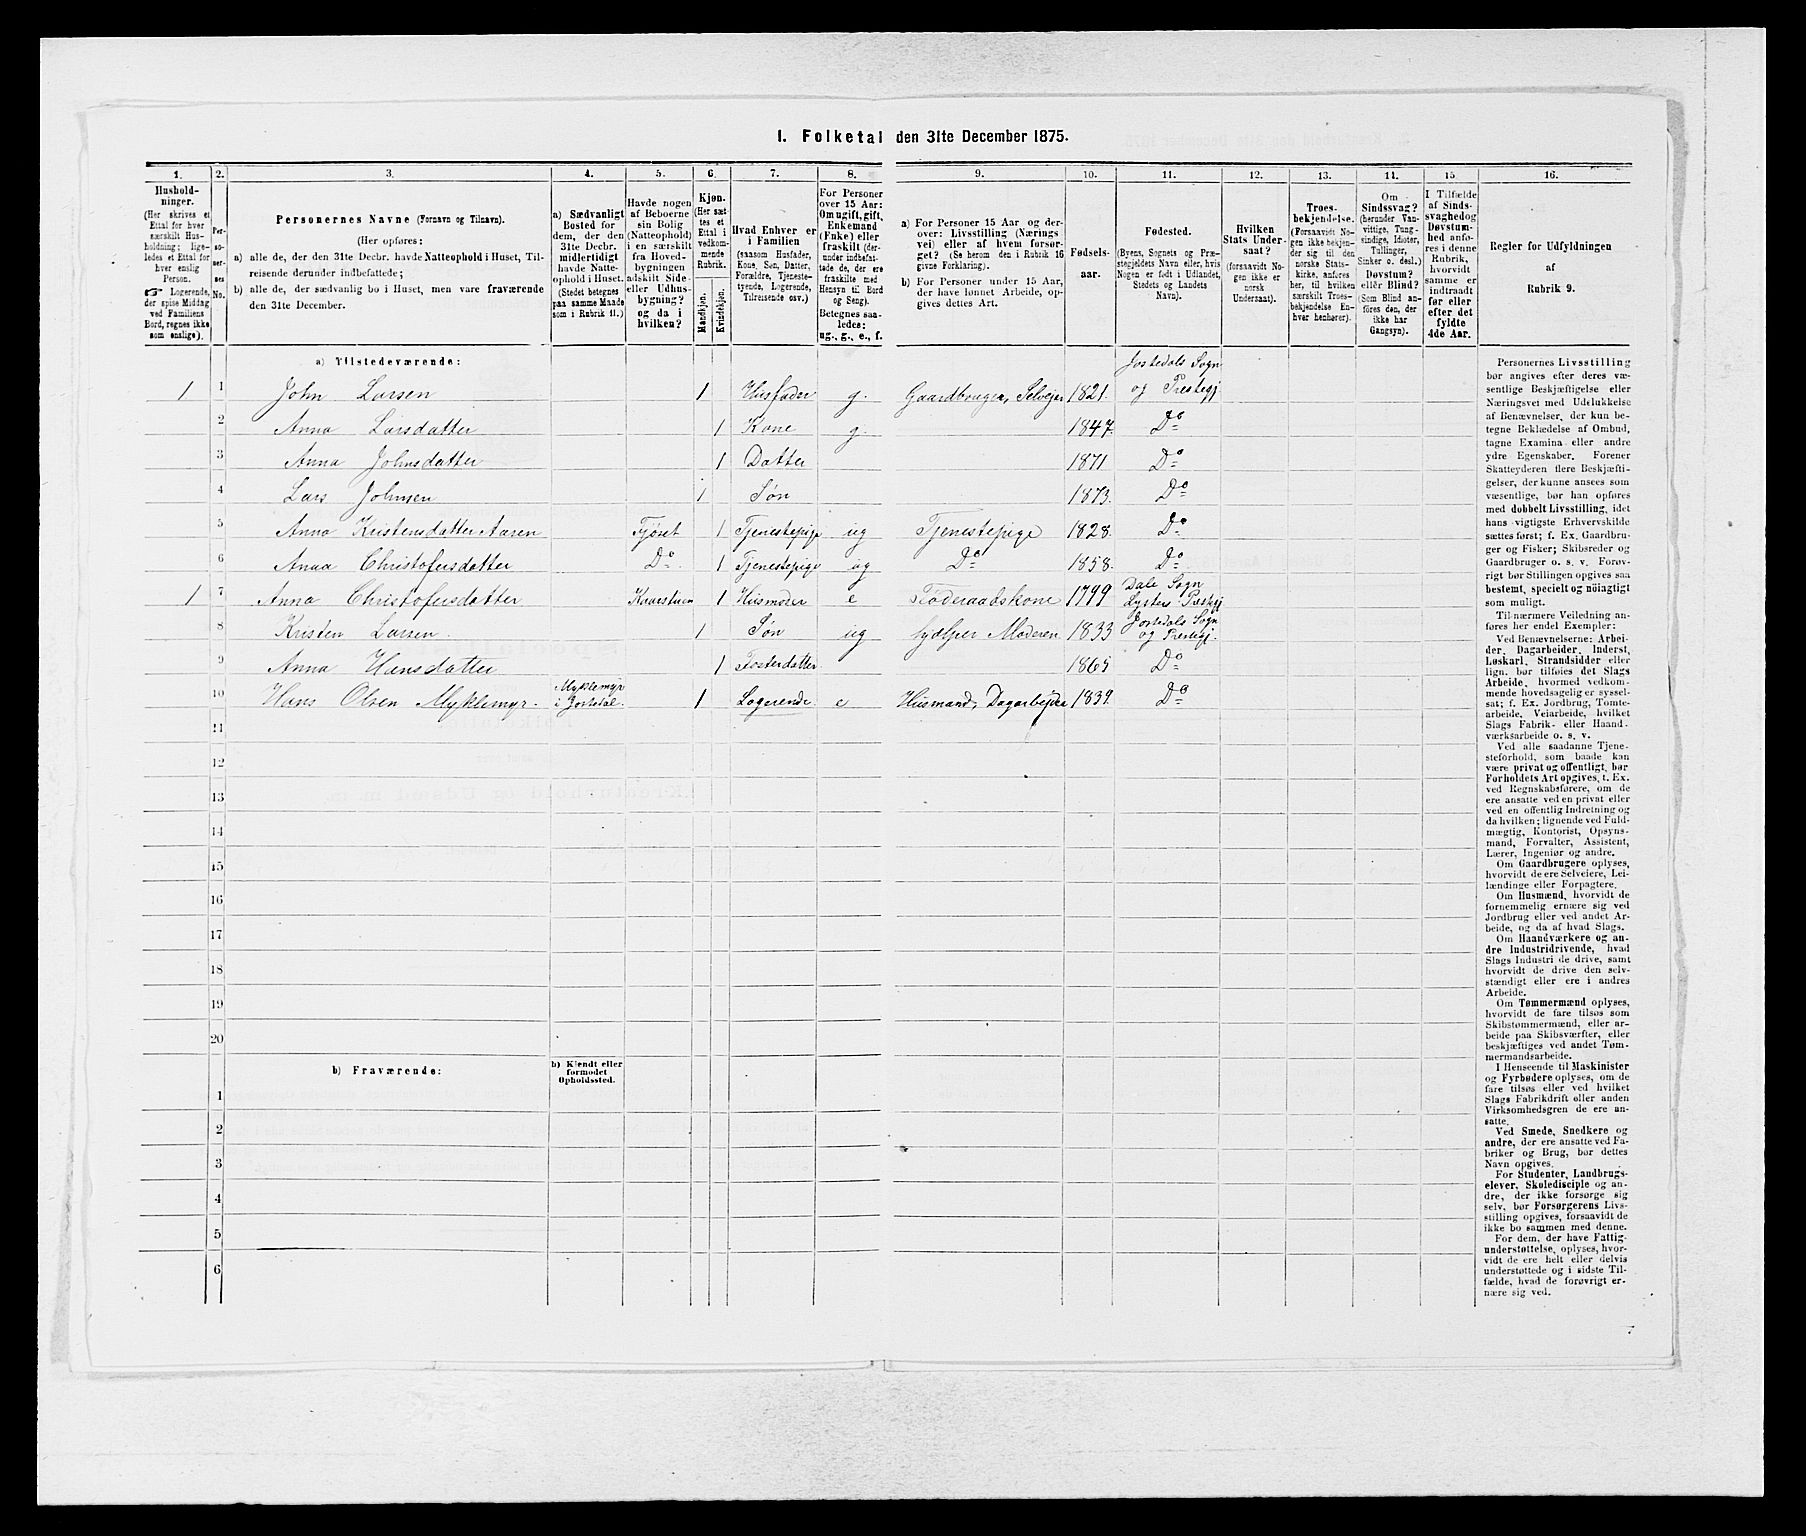 I. Folketal den 31te December 1875.
1. 2. 3. 4. 5. 6. 7. 8. 9. 10. 11. 12. 13. 14. 15 16.
Hushold-
ninger.
(Her skrives et
Ettal for hver
særskilt Hus-
holdning; lige-
ledes et Ettal for
hver enslig
Person.
☞ Logerende,
der spise Middag
ved Familiens
Bord, regnes ikke
som enslige).
Per-
so-
ner-
nes
No.
Personernes Navne (Fornavn og Tilnavn).
(Her opføres:
a) alle de, der den 31te Decbr. havde Natteophold i Huset, Til-
reisende derunder indbefattede;
b) alle de, der sædvanlig bo i Huset, men vare fraværende
den 31te December.
a) Sædvanligt
Bosted for
dem, der den
31te Decbr.
midlertidigt
havde Natte-
ophold i Huset.
(Stedet betegnes
paa samme Maade
som i Rubrik 11.)
Havde nogen
af Beboerne
sin Bolig
(Natteophold)
i en særskilt
fra Hoved-
bygningen
adskilt Side-
eller Udhus-
bygning?
og da i
hvilken?
Kjøn.
(Her sæt-
tes et
Ettal i
vedkom-
mende
Rubrik.
Mandkjøn.
Kvindekjøn.
Hvad Enhver er
i Familien
(saasom Husfader,
Kone, Søn, Datter,
Forældre, Tjeneste-
tyende, Logerende,
Tilreisende osv.)
For Personer
over 15 Aar:
Om ugift, gift,
Enkemand
(Enke) eller
fraskilt (der-
under indbefat-
tede de, der ere
fraskilte med
Hensyn til Bord
og Seng).
Betegnes saa-
ledes:
ug., g., e., f.
a) For Personer 15 Aar og der-
over: Livsstilling (Nærings-
vei) eller af hvem forsør-
get? (Se herom den i Rubrik 16
givne Forklaring).
b) For Personer under 15 Aar,
der have lønnet Arbeide, op-
gives dettes Art.
Fødsels-
aar.
Fødested.
(Byens, Sognets og Præ-
stegjeldets Navn eller, hvis
Nogen er født i Udlandet,
Stedets og Landets
Navn).
Hvilken
Stats Under-
saat?
(forsaavidt No-
gen ikke er
norsk
Undersaat).
Troes-
bekjendelse.
(Forsaavidt No-
gen ikke bekjen-
der sig til den
norske Stats-
kirke, anføres
her, til hvilken
særskilt Troes-
bekjendelse En-
hver henhører).
Om
Sindssvag?
(herunder Van-
vittige, Tung-
sindige, Idioter,
Tullinger,
Sinker o. desl.)
Døvstum?
eller Blind?
(Som Blind an-
føres den, der
ikke har
Gangsyn).
I Tilfælde
af Sinds-
svaghed og
Døvstum-
hed anfø-
res i denne
Rubrik,
hvorvidt
samme er
indtraadt
før eller
efter det
fyldte
4de Aar.
Regler for Udfyldningen
af
Rubrik 9.
a) Tilstedeværende:
Jostedals Sogn
1 1 John Larsen 1 Husfader g. Gaardbruger, Selvejer 1821. og Prestegj
2 Anna Larsdatter 1 Kone g. 1847. Do
3 Anna Johnsdatter 1 Datter 1871 Do
4 Lars Johnsen 1 Søn 1873. Do
5 Anna Kristensdatter Aasen Fjøset 1 Tjenestepige ug Tjenestepige 1828. Do
6 Anna Christofersdatter Do. 1 Tjenestepige ug Do 1858. Do.
1 7 Anna Christofersdatter 1 Husmoder e Føderaadskone 1799 Dale Sogn
Lysters Prestegj
8 Kristen Larsen 1 Søn ug hjælper Moderen 1833 Jostedals Sogn
og Prestegj.
9 Anna Hansdatter 1 Fosterdatter 1865 Do
10 Hans Olsen Myklemyr. Myklemyr
i Jostedal. 1 Logerende e Husmand, Dagarbejder 1839. Do
11
12
13
14
15
16
17
18
19
20
b) Fraværende:
b) Kjendt eller
formodet
Opholdssted.
1
2
3
4
5
6
Personernes Livsstilling
bør angives efter deres væ-
sentlige Beskjæftigelse eller
Næringsvei med Udelukkelse
af Benævnelser, der kun be-
tegne Beklædelse af Ombud,
tagne Examina eller andre
ydre Egenskaber. Forener
Skatteyderen flere Beskjæfti-
gelser, der kunne ansees som
væsentlige, bør han opføres
med dobbelt Livsstilling, idet
hans vigtigste Erhvervskilde
sættes først; f. Ex. Gaardbru-
ger og Fisker; Skibsreder og
Gaardbruger o. s. v. Forøv-
rigt bør Stillingen opgives saa
bestemt, specielt og nøiagtigt
som muligt.
Til nærmere Veiledning an-
føres her endel Exempler:
Ved Benævnelserne: Arbei-
der, Dagarbeider, Inderst,
Løskarl, Strandsidder eller
lign. bør tilføies det Slags
Arbeide, hvormed vedkom-
mende hovedsagelig er syssel-
sat; f. Ex. Jordbrug, Tomte-
arbeide, Veiarbeide, hvilket
Slags Fabrik- eller Haand-
værksarbeide o. s. v.
Ved alle saadanne Tjene-
steforhold, som baade kan
være privat og offentligt, bør
Forholdets Art opgives, t. Ex.
ved Regnskabsførere, om de
ere ansatte ved en privat eller
ved en offentlig Indretning og
da hvilken; lignende ved Fuld-
mægtig, Kontorist, Opsyns-
mand, Forvalter, Assistent,
Lærer, Ingeniør og andre.
Om Gaardbrugere oplyses,
hvorvidt de ere Selveiere, Lei-
lændinge eller Forpagtere.
Om Husmænd, hvorvidt de
fornemmelig ernære sig ved
Jordbrug eller ved andet Ar-
beide, og da af hvad Slags.
Om Haandværkere og an-
dre Industridrivende, hvad
Slags Industri de drive, samt
hvorvidt de drive den selv-
stændigt eller ere i andres
Arbeide.
Om Tømmermænd oplyses,
hvorvidt de fare tilsøs som
Skibstømmermænd, eller ar-
beide paa Skibsværfter, eller
beskjæftiges ved andet Tøm-
mermandsarbeide.
I Henseende til Maskinister
og Fyrbødere oplyses, om de
fare tilsøs eller ved hvilket
Slags Fabrikdrift eller anden
Virksomhedsgren de ere an-
satte.
Ved Smede, Snedkere og
andre, der ere ansatte ved Fa-
briker og Brug, bør dettes
Navn opgives.
For Studenter, Landbrugs-
elever, Skoledisciple og an-
dre, der ikke forsørge sig
selv, bør Forsørgerens Livs-
stilling opgives, forsaavidt de
ikke bo sammen med denne.
For dem, der have Fattig-
understøttelse, oplyses, hvor-
vidt de ere helt eller delvis
understøttede og i sidste Til-
fælde, hvad de forøvrigt er-
nære sig ved.